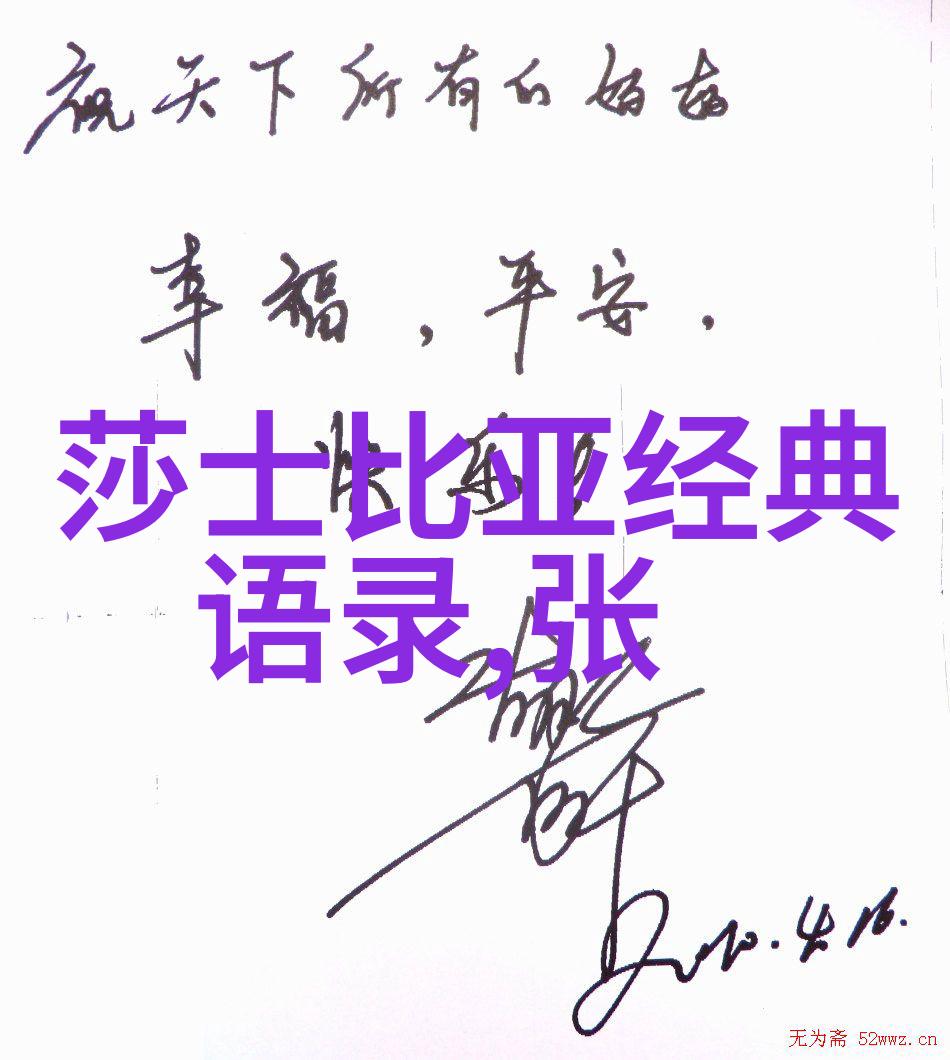 祝天下所有的妈妈
幸福，平安，
快乐！
莎士比亚经典
语录,张
2010.4.16.
无为斋 52wwz.cn